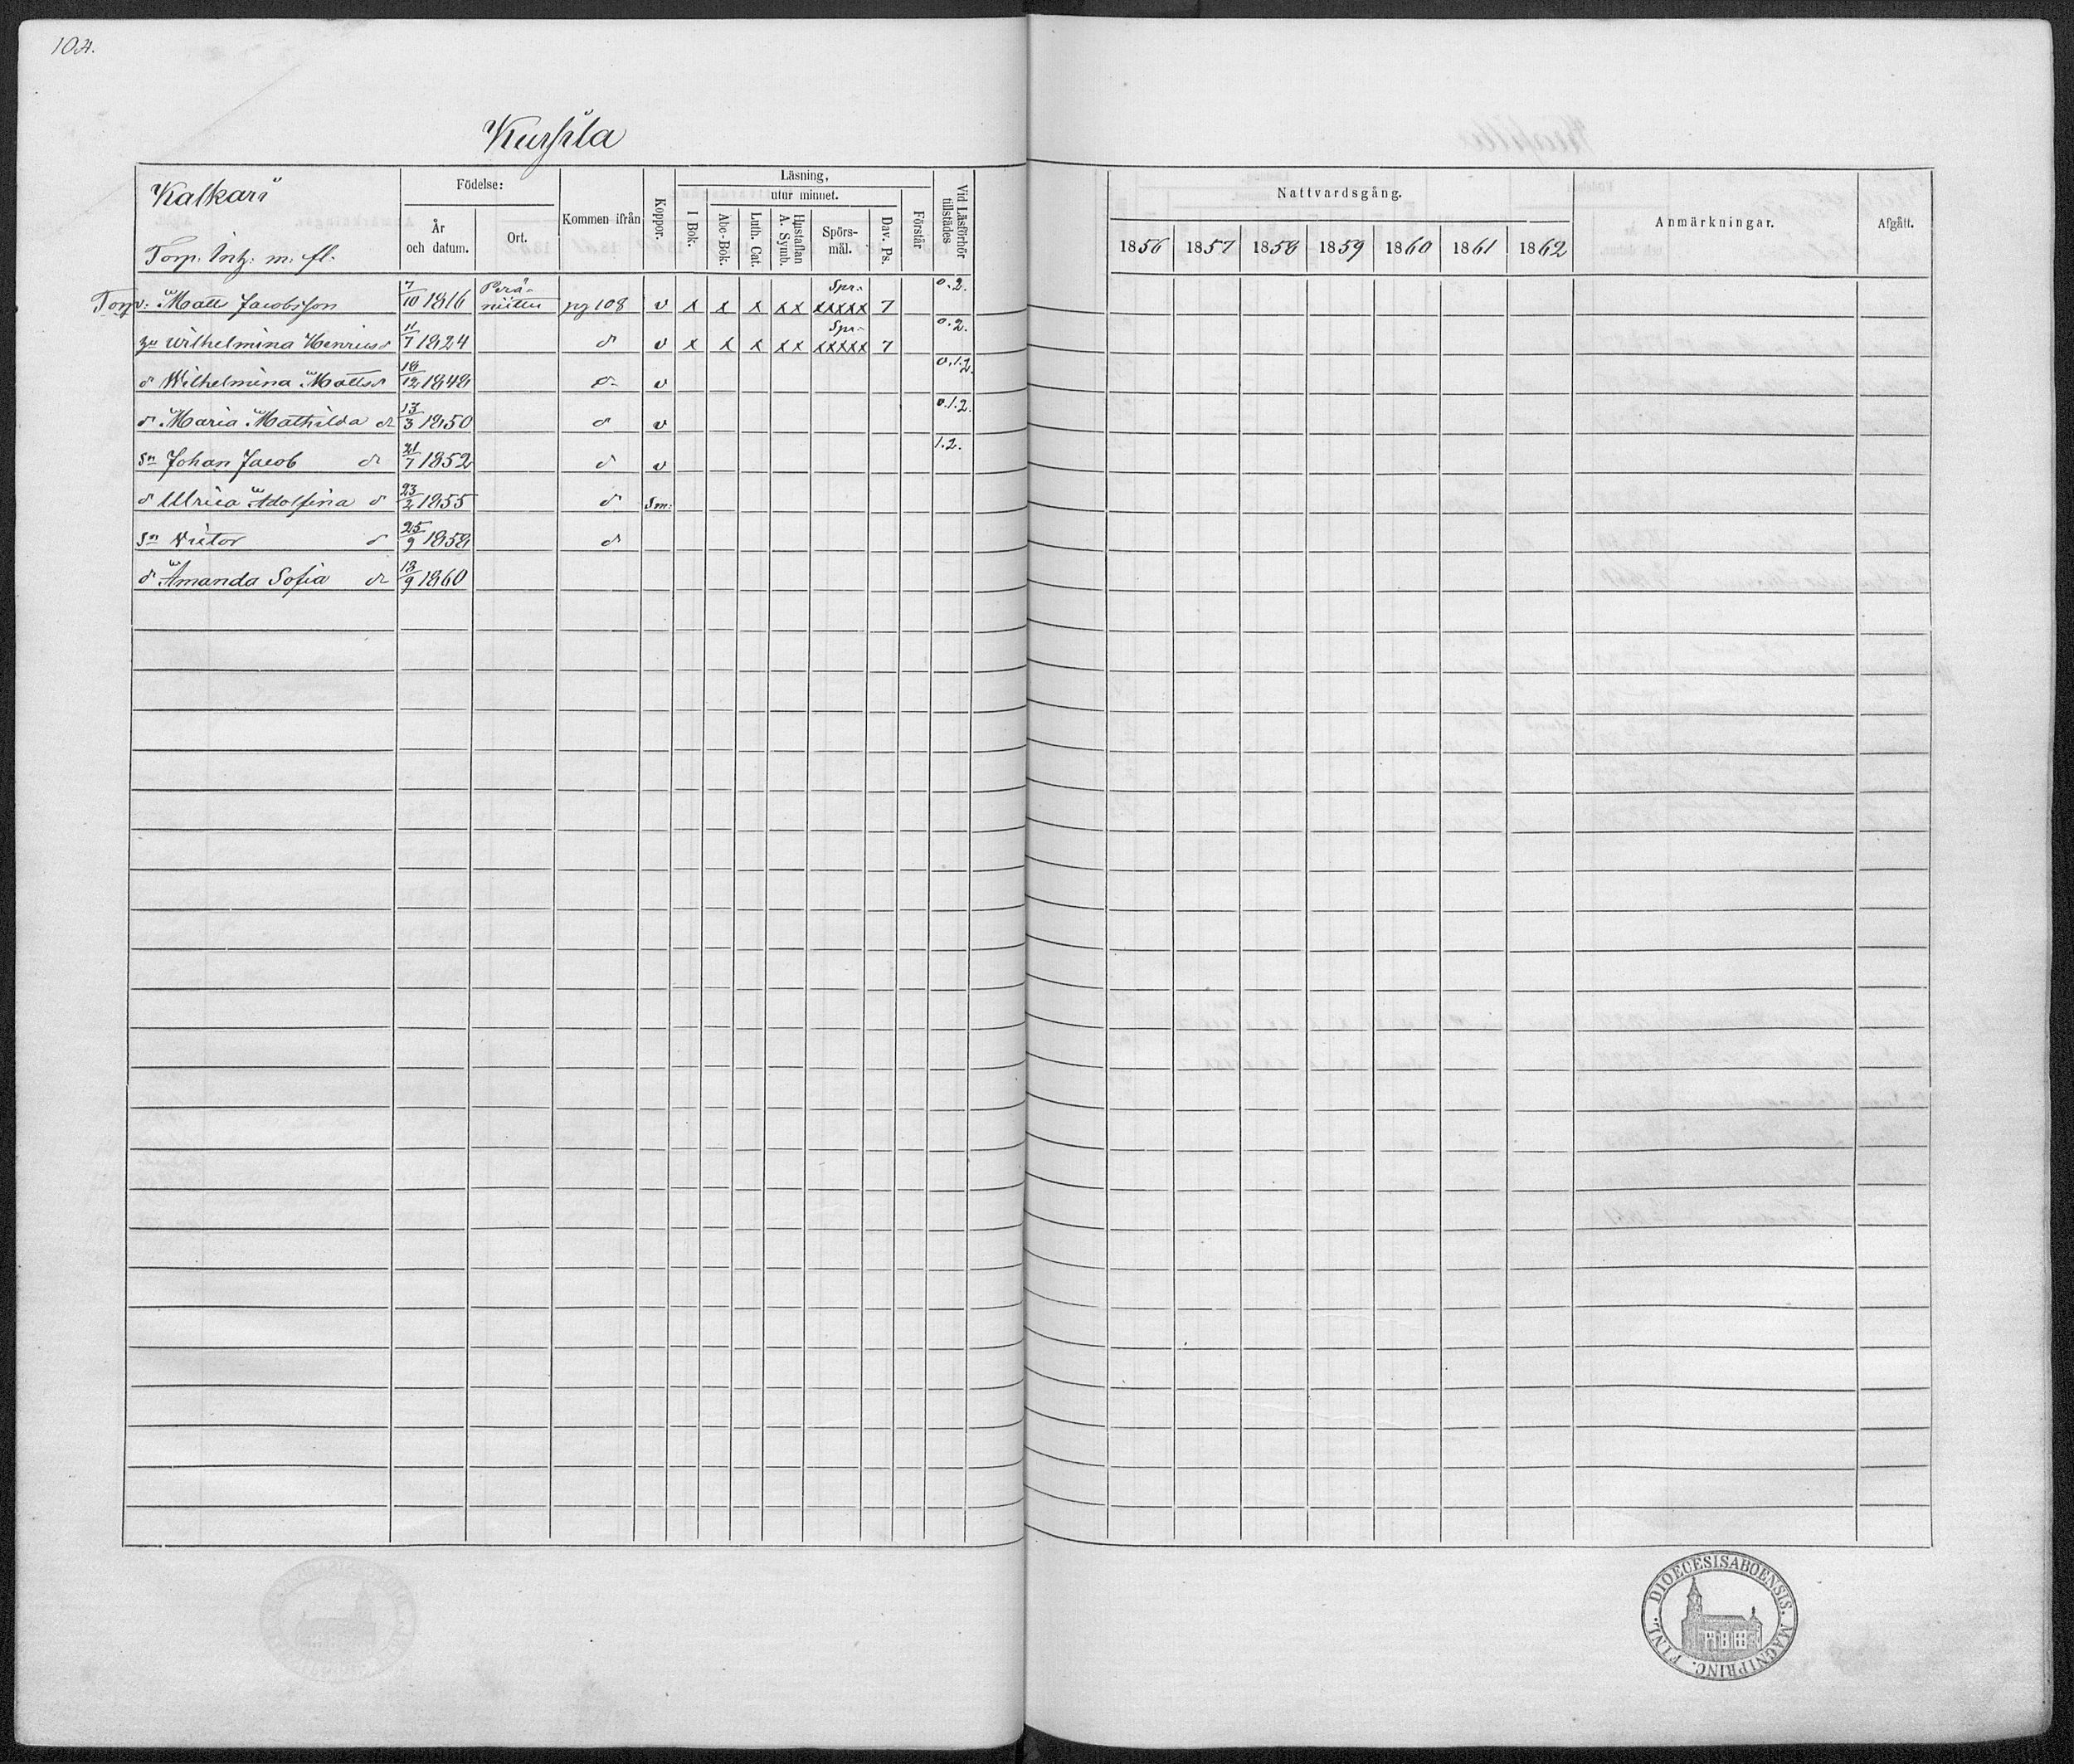 104.
Kurkila
Kalkari
Torp. Intz. m. fl.
Födelse:
År och datum.
Ort.
Kommen ifrån
Koppor.
Läsning,
utur minnet.
I Bok.
Abc-Bok.
Luth. Cat.
Hustaflan A. Symb.
Spörs-mål.
Dav. Ps.
Förstår
Vid Läsförhör tillstädes
Nattvardsgång.
1856 1857 1858 1859 1860 1861 1862
Anmärkningar.
Afgått.
Torp: Matts Jacobsson 7/10 1816 Perä-niittu pg 108 v x x x xx Spr. xxxxx 7 0.2.
hu Wilhelmina Henricsd 11/7 1824 d v x x x xx Spr. xxxxx 7 0.2.
d Wilhelmina Mattsd 18/12 1848 d v 0.1.2.
d Maria Mathilda d 13/3 1850 d v 0.1.2.
Sn Johan Jacob d 21/7 1852 d v 1.2.
d Ulrica Adolfina d 23/2 1855 d Sm:
Sn Victor d 25/9 1858 d
d Amanda Sofia d 18/9 1860
DIOECESIS ABOENSIS. MAGNI PRINC. FINL.